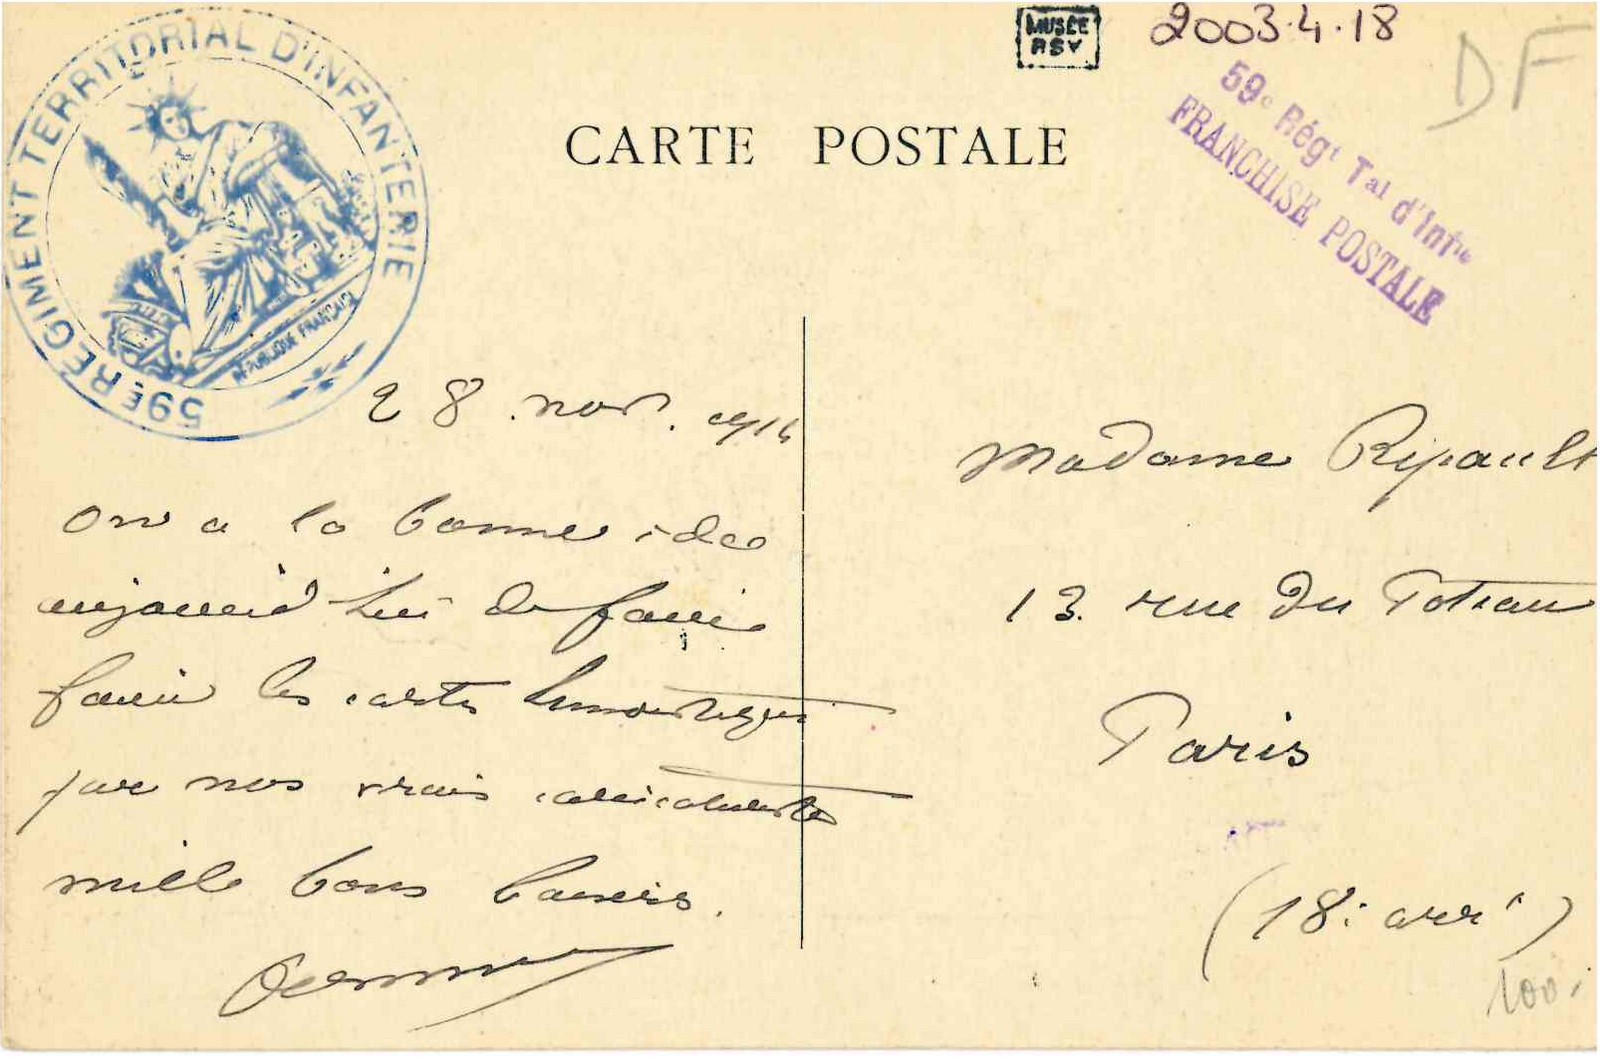 59E RÉGIMENT TERRITORIAL D'INFANTERIE
RÉPUBLIQUE FRANÇAISE
MUSÉE
RSV
2003.4.18
DF
59e Régt Tal d'Infie
FRANCHISE POSTALE
CARTE POSTALE
28 nov. 1914
On a la bonne idée
aujourd'hui de faire
faire les cartes humoristiques
par nos vrais caricaturistes
mille bons baisers.
Madame Ripault
13. rue du Poteau
Paris
(18e arrt)
100